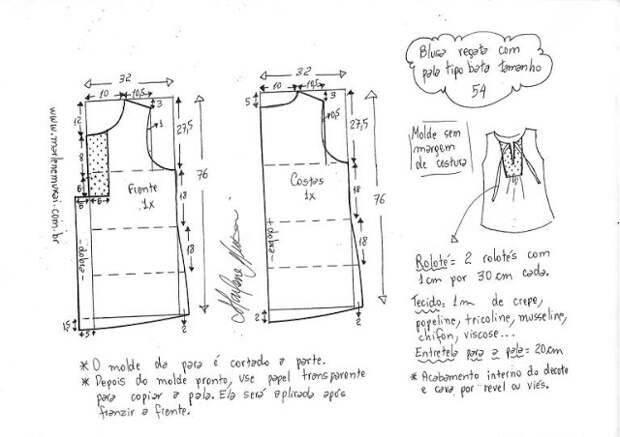 Blusa regata com
pala tipo bata tamanho
54
32
10
10,5
3
12
1
27,5
8
6
6
6
76
18
18
Frente
1x
-dobra-
1,5
5
2
www.marlenemukai.com.br
32
10
10,5
5
3
0,5
27,5
Costas
1x
76
18
18
-dobra-
2
2
Marlene Mukai
Molde sem
margem
de costura
Roloté= 2 rolotés com
1cm por 30 cm cada.
Tecido= 1m de crepe,
popeline, tricoline, musseline,
chifon, viscose...
Entretela para a pala= 20cm
* Acabamento interno do decote
e cava por revel ou viés.
* O molde da para é cortado a parte.
* Depois do molde pronto, use papel transparente
para copiar a pala. Ela será aplicada após
franzir a frente.